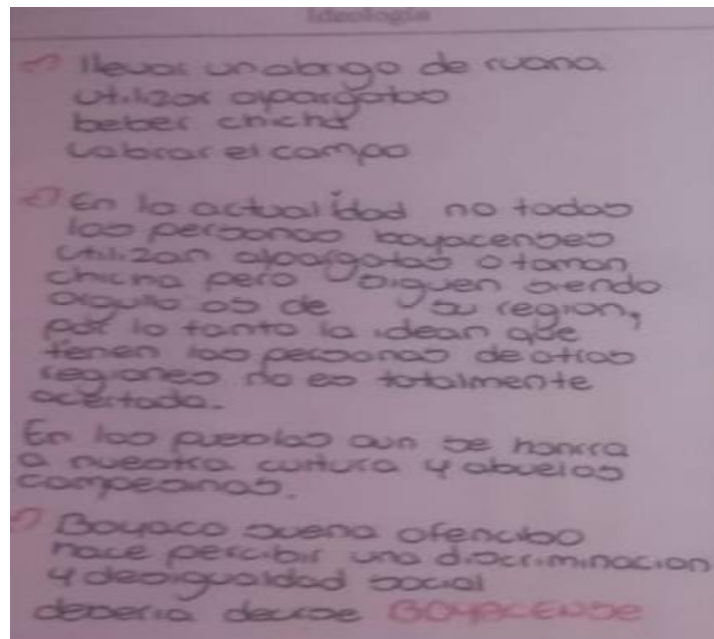 Ideología
1) llevar un abrigo de ruana
utilizar alpargatas
beber chicha
labrar el campo
2) En la actualidad no todas
las personas boyacenses
utilizan alpargatas o toman
chicha pero siguen siendo
orgullosos de su region,
por lo tanto la idean que
tienen las personas de otras
regiones no es totalmente
acertada.
En los pueblos aun se honrra
a nuestra cultura y abuelos
campesinos.
Boyaco suena ofencibo
hace percibir una discriminacion
y desigualdad social
deberia decirse BOYACENSE